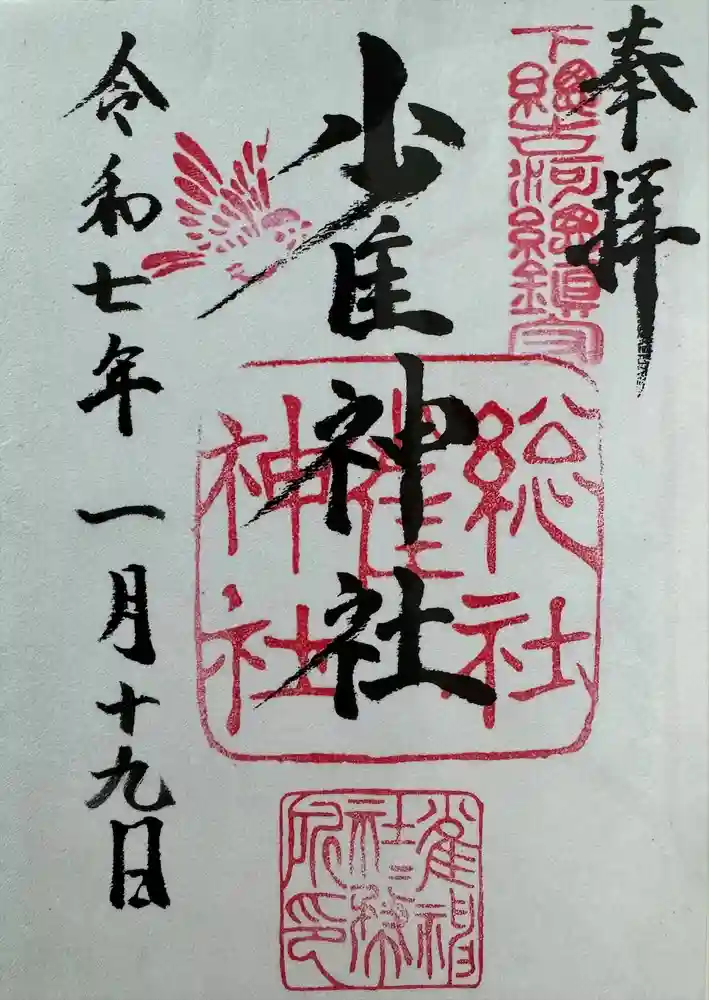 奉拝
下總古河總鎮守
雀神社
総社
雀
神社
令和七年一月十九日
雀神
社務
所印